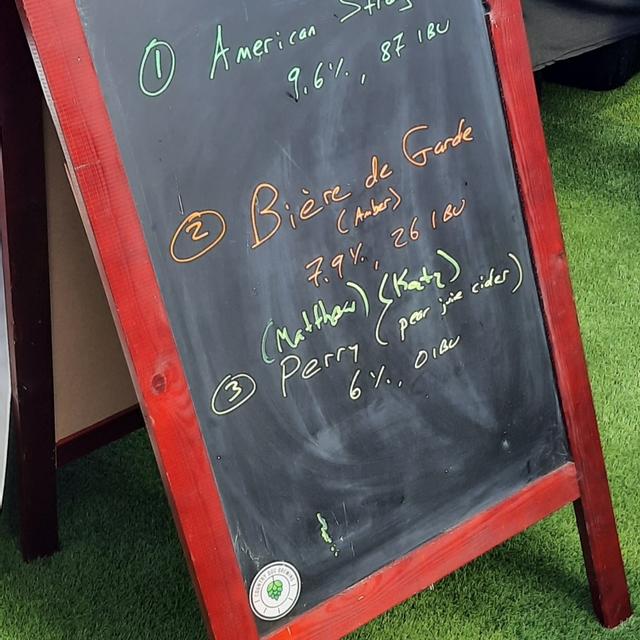 ① American
9.6%, 87 IBU
② Bière de Garde
(Amber)
7.9%, 26 IBU
(Matthew) (Katy)
③ Perry (pear juie cider)
6%, 0 IBU